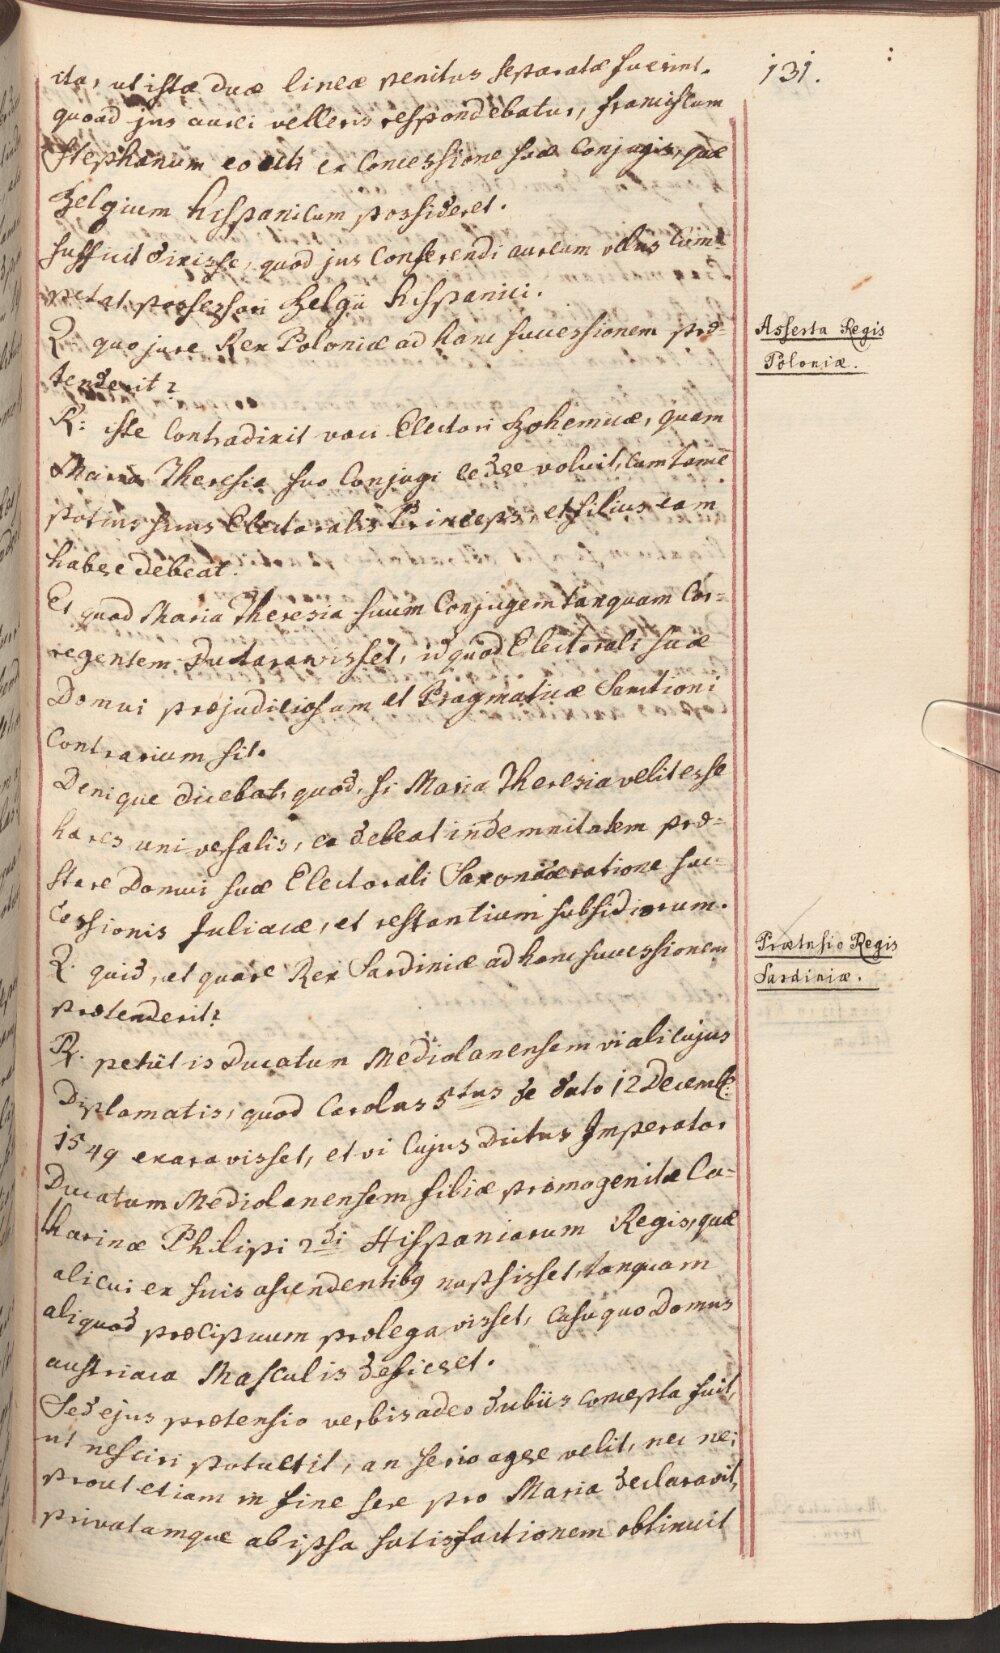 131.
ita, ut istæ duæ lineæ penitus separatæ fuerint.
quoad jus aurei velleris respondebatur, franciscum
Stephanum eo uti ex Concessione suæ Conjugis, quæ
Belgium hispanicum possideret.
sufficit dixisse, quod jus Conferendi aureum vellus Com=
petat possessori Belgii hispanici.
Q: quo jure Rex Poloniæ ad hanc successionem præ=
tenderit?
Asserta Regis
Poloniæ.
R: iste Contradixit voci Electori Bohemicæ, quam
Maria Theresia suo Conjugi cedere voluit, cum tamē
potius suus Electoralis Princeps, et filius eam
habere debeat.
Et quod Maria Theresia suum Conjugem tanquam Cor=
regentem declaravisset, id quod Electorali suæ
Domui præjudiciosum et Pragmaticæ Sanctioni
Contrarium sit.
Denique dicebat, quod, si Maria Theresia velit esse
hæres universalis, ea debeat indemnitatem præ=
stare Domui suæ Electorali Saxonicæ ratione suc=
cessionis Juliacæ, et restantium subsidiorum.
Q: quid, et quare Rex Sardiniæ ad hanc successionem
prætenderit?
Prætensio Regis
Sardiniæ.
R: petiit is Ducatum Mediolanensem vi alicujus
Diplomatis, quod Carolus 5tus de dato 12 Decemb:
1549 exaravisset, et vi Cujus Dictus Imperator
Ducatum Mediolanensem filiæ primogenitæ Ca=
tharinæ Philipi 2di Hispaniarum Regis, quæ
alicui ex suis ascendentibq nupsisset, tanquam
aliquod præcipuum prælegavisset, Casu quo Domus
austriaca Masculis deficeret.
Sed ejus prætensio verbis adeo dubiis Concepta fuit,
ut nesciri potuerit, an serio agere velit, nec ne;
prout etiam in fine sese pro Maria declaravit,
privatamque ab ipsa satisfactionem obtinuit